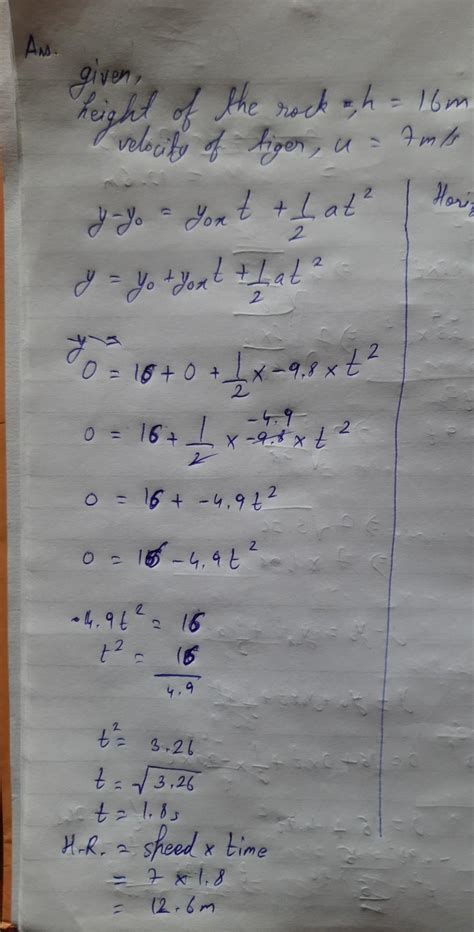 Ans.
given,
height of the rock =, h = 16m
velocity of tiger, u = 7m/s
y-y₀ = y₀ₓ t + 1/2 at²
Hori
y = y₀ + y₀ₓt + 1/2 at²
y =
0 = 16 + 0 + 1/2 x -9.8 x t²
-4.9
0 = 16 + 1/2 x -9.8 x t²
0 = 16 + -4.9t²
0 = 16 - 4.9t²
-4.9t² = 16
t² = 16/4.9
t² = 3.26
t = √3.26
t = 1.8s
H.R. = speed x time
= 7 x 1.8
= 12.6m